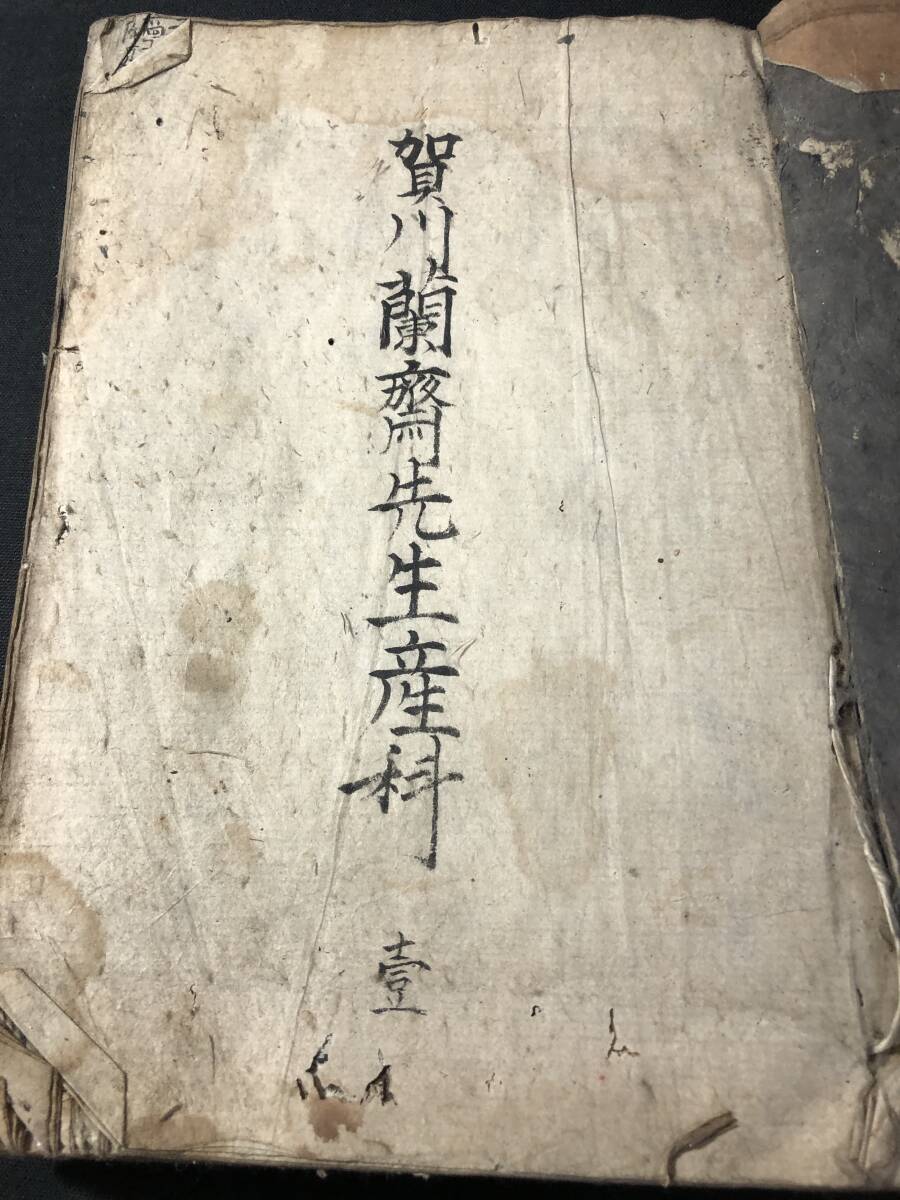 賀川蘭齋先生産科
壹